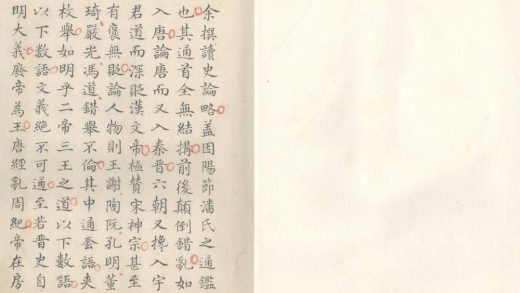 余撰讀史論略蓋因陽節潘氏之通鑑
也其通首全無結搆前後顛倒錯亂如
入唐論唐而又入秦晉六朝又攙入宇
君道而深貶漢文帝極贊宋神宗甚至
有褒無貶論人物則王謝陶阮孔明董
琦嚴光馮道錯舉不倫其中通套語夾
枚舉如明乎二帝三王之道以下數語
以下數語文義絕不可通至若晉史自
明大義廢帝為王唐經亂周紀帝在房